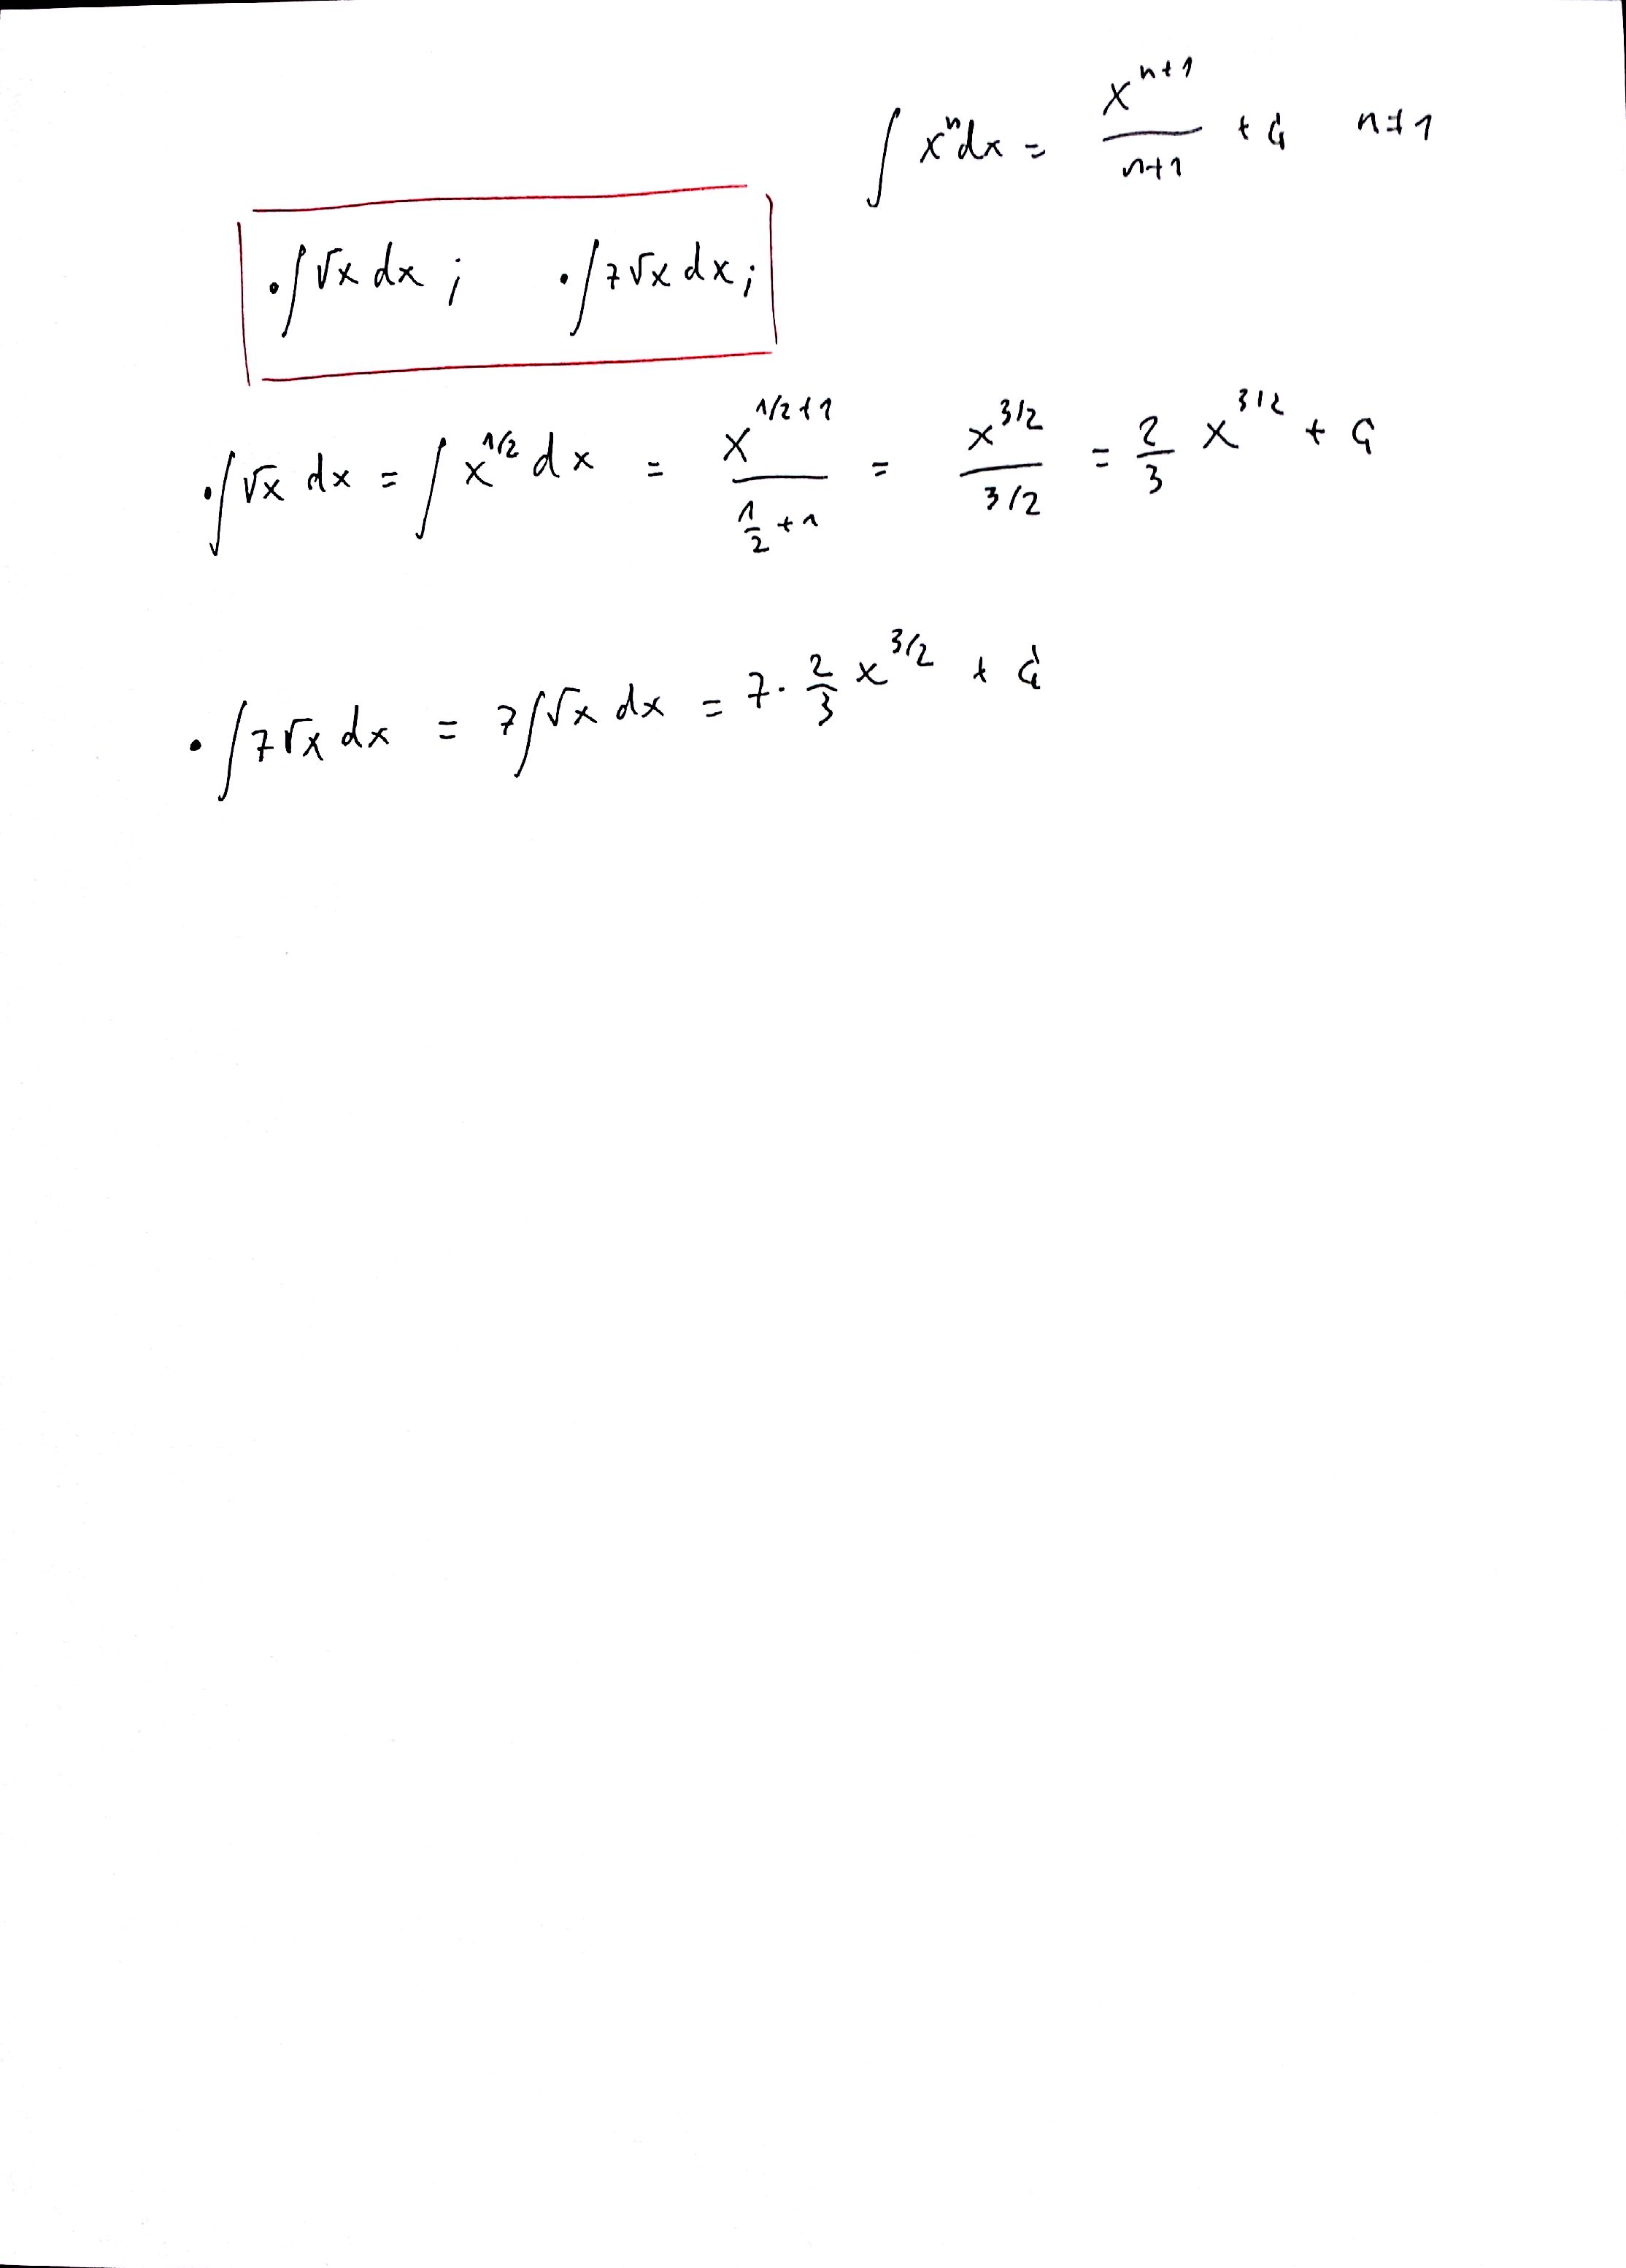 ∫ xⁿ dx = x^(n+1) / (n+1) + C n ≠ 1
• ∫ √x dx ; • ∫ 7√x dx ;
• ∫ √x dx = ∫ x^(1/2) dx = x^(1/2+1) / (1/2 + 1) = x^(3/2) / (3/2) = 2/3 x^(3/2) + C
• ∫ 7√x dx = 7∫ √x dx = 7 · 2/3 x^(3/2) + C